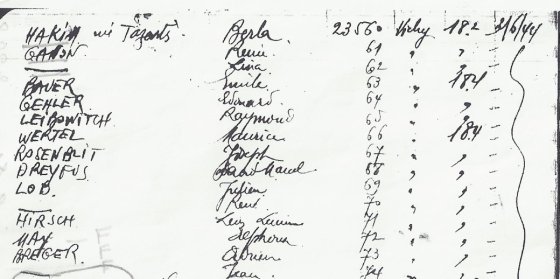 HAKIM Berta. 23560 Vichy 18.2 21/6/44
GAHON Renée 61 " "
Lina 62 " "
BAUER Emile 63 " 18.4
GEHLER Edouard 64 " "
LEIBOWITCH Raymond 65 " "
WERTEL Maurice 66 " 18.4
ROSENBLIT Joseph 67 " "
DREYFUS 68 " "
LOB. Julien 69 " "
René 70 " "
HIRSCH 71 " "
MAY Alphonse 72 " "
BREGER. Adrien 73 " "
Jean 74